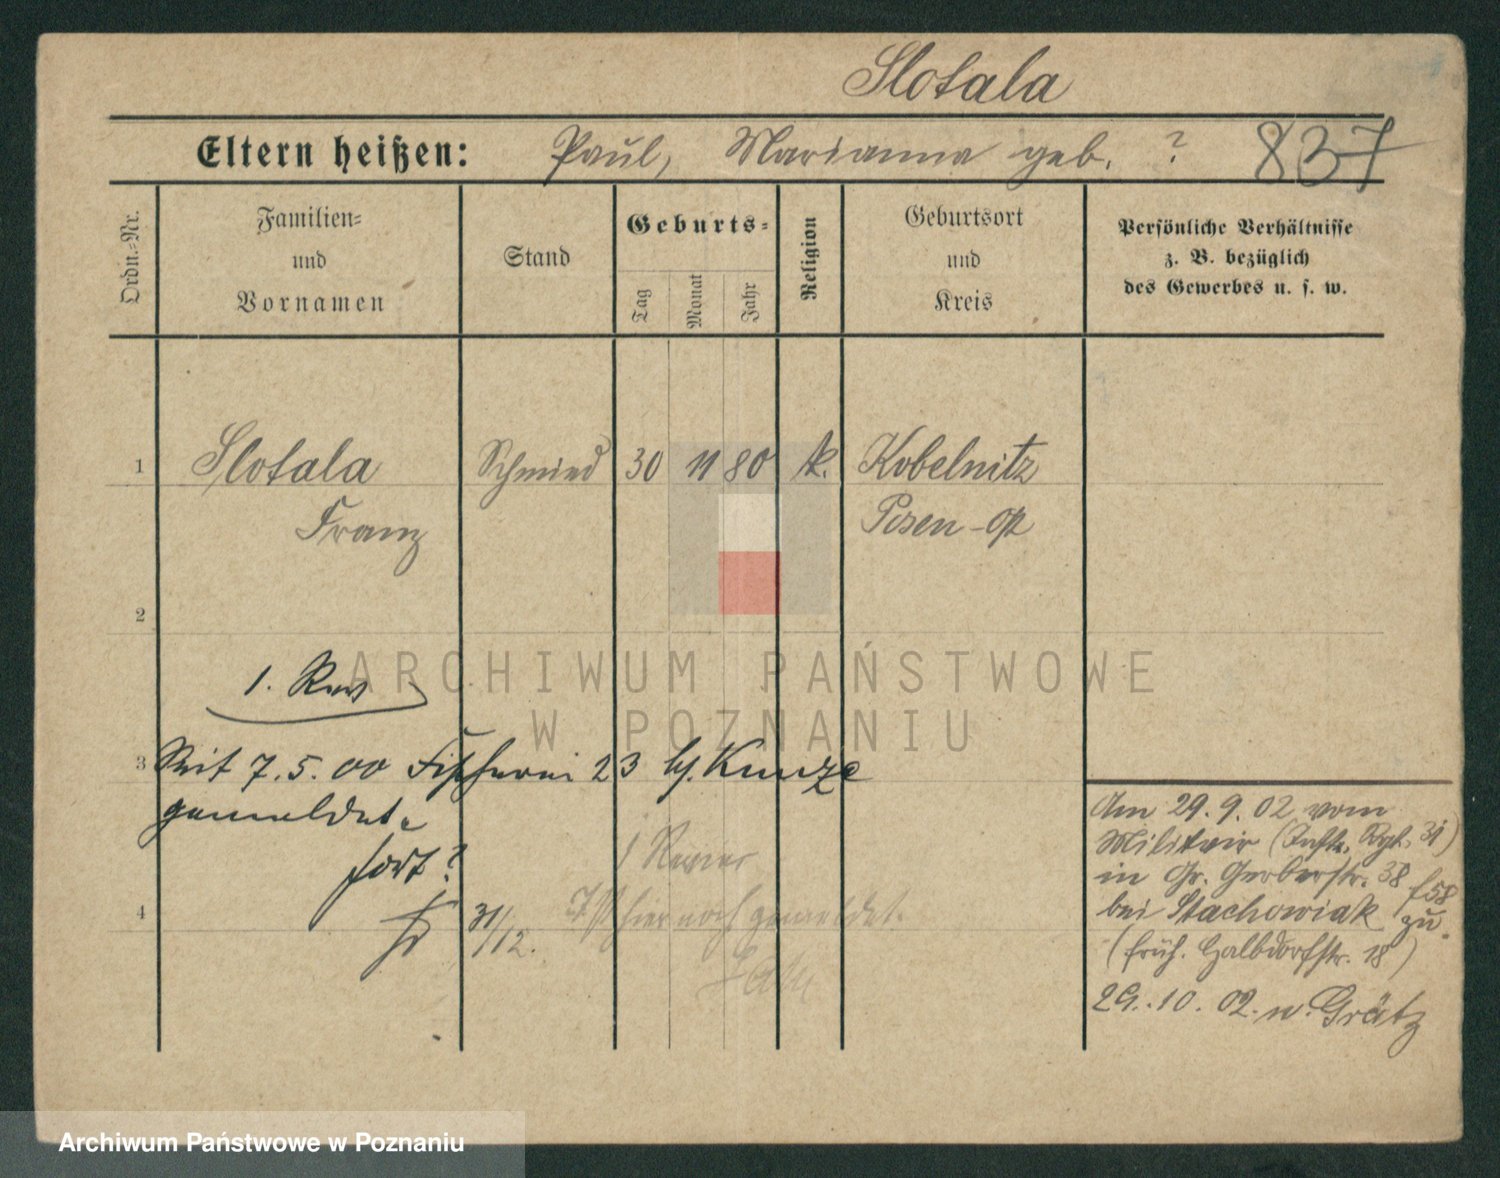 Slotala
Eltern heißen: Paul, Marianna geb. ? 837
Ordn.-Nr.
Familien-
und
Vornamen
Stand
Geburts-
Tag
Monat
Jahr
Religion
Geburtsort
und
Kreis
Persönliche Verhältnisse
z. B. bezüglich
des Gewerbes u. s. w.
1 Slotala Schmied 30 11 80 k. Kobelnitz
Franz Posen-Ost
2
1. Rev
3 Seit 7.5.00 Fischerei 23 b/ Kunze
gemeldet.
fort?
1 Revier
4 31/12. Ist hier noch gemeldet.
Am 29.9.02 vom
Militair (Inftr. Rgt. 31)
in Gr. Gerberstr. 38 f58
bei Stachowiak zu.
(früh. Halbdorfstr. 18)
29.10.02. n. Grätz
ARCHIWUM PAŃSTWOWE
W POZNANIU
Archiwum Państwowe w Poznaniu